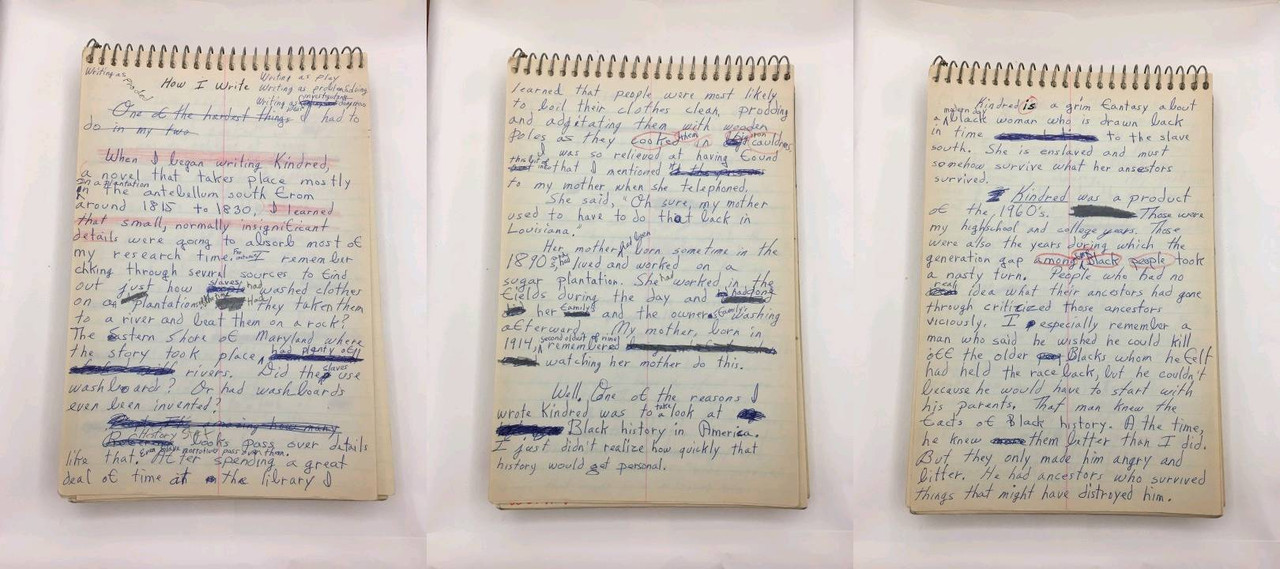 Writing as
How I Write
Writing as play
Writing as problem solving
Writing as
One of the hardest things I had to
do in my two
When I began writing Kindred,
a novel that takes place mostly
on a plantation
in the antebellum south from
around 1815 to 1830, I learned
that small, normally insignificant
details were going to absorb most of
my research time. I remember
chking through several sources to find
out just how slaves had washed clothes
on a plantation. Had they taken them
to a river and beat them on a rock?
The Eastern Shore of Maryland where
the story took place had plenty of
rivers. Did the slaves use
washboards? Or had washboards
even been invented?
how many
History books pass over details
Even slave narratives pass over them.
like that. After spending a great
deal of time at the library I
learned that people were most likely
to boil their clothes clean, prodding
and adgitating them with wooden
poles as they cooked them in iron cauldres.
I was so relieved at having found
this bit of that I mentioned
to my mother when she telephoned.
She said, "Oh sure, my mother
used to have to do that back in
Louisiana."
Her mother had been born sometime in the
1890s, had lived and worked on a
sugar plantation. She had worked in the
fields during the day and had done
her family and the owner's family's washing
afterward. My mother, born in
1914, second oldest of nine, remembered
watching her mother do this.
Well. One of the reasons I
wrote Kindred was to take a look at
Black history in America.
I just didn't realize how quickly that
history would get personal.
Kindred is a grim fantasy about
a modern day Black woman who is drawn back
in time to the slave
south. She is enslaved and must
somehow survive what her ansestors
survived.
Kindred was a product
of the, 1960's. Those were
my highschool and college years. Those
were also the years during which the
generation gap among Black people took
a nasty turn. People who had no
real idea what their ancestors had gone
through criticized those ancestors
viciously. I especially remember a
man who said he wished he could kill
off the older Blacks whom he felt
had held the race back, but he couldn't
because he would have to start with
his parents. That man knew the
facts of Black history. At the time,
he knew them better than I did.
But they only made him angry and
bitter. He had ancestors who survived
things that might have distroyed him.